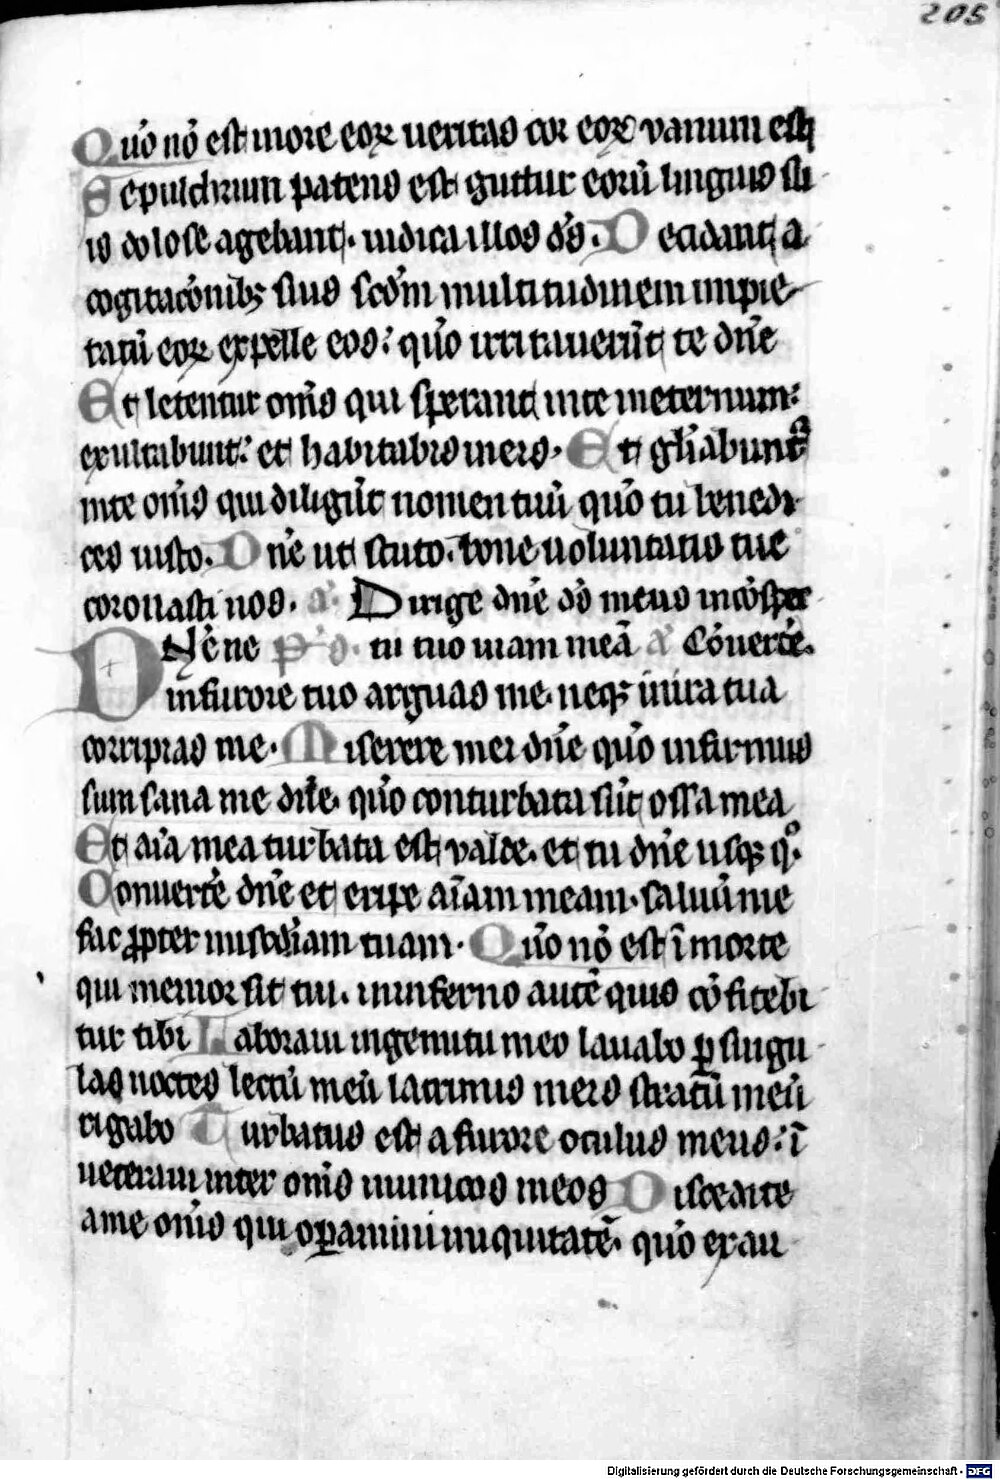 205
Quō nō est in ore eoꝝ ueritas cor eoꝝ vanum est
Sepulchrum patens est guttur eorū linguis su
is dolose agebant. iudica illos ds̄. Decidant a
cogitacōnibꝫ suis scd̄m multitudinem impie
tatū eoꝝ expelle eos: quō irritauerūt te dn̄e
Et letentur om̄s qui sperant in te in eternum:
exultabunt: et habitabis in eis. Et gl̄iabunt᷑
in te om̄s qui diligūt nomen tuū quō tu benedi
ces iusto. Dn̄e ut scuto. bone uoluntatis tue
coronasti nos. a. Dirige dn̄e ds̄ meus in cōspec
DN̄e ne pˢ. tu tuo uiam meā a Cōuerte.
in furore tuo arguas me. neqꝫ in ira tua
corripias me. Miserere mei dn̄e quō infirmus
sum sana me dn̄e. quō conturbata sūt ossa mea
Et aīa mea turbata est valde. et tu dn̄e usqꝫ qͦ.
Conuerte dn̄e et eripe aīam meam. saluū me
fac ꝓpter mīsc̄diam tuam. Quō nō est ī morte
qui memor sit tui. in inferno autē quis cōfitebi
tur tibi Laboraui in gemitu meo lauabo ꝑ singu
las noctes lectū meū lacrimis meis stratū meū
rigabo Turbatus est a furore oculus meus: ī
ueteraui inter om̄s inimicos meos Discedite
a me om̄s qui oꝑamini iniquitatē. quō exau
Digitalisierung gefördert durch die Deutsche Forschungsgemeinschaft - DFG